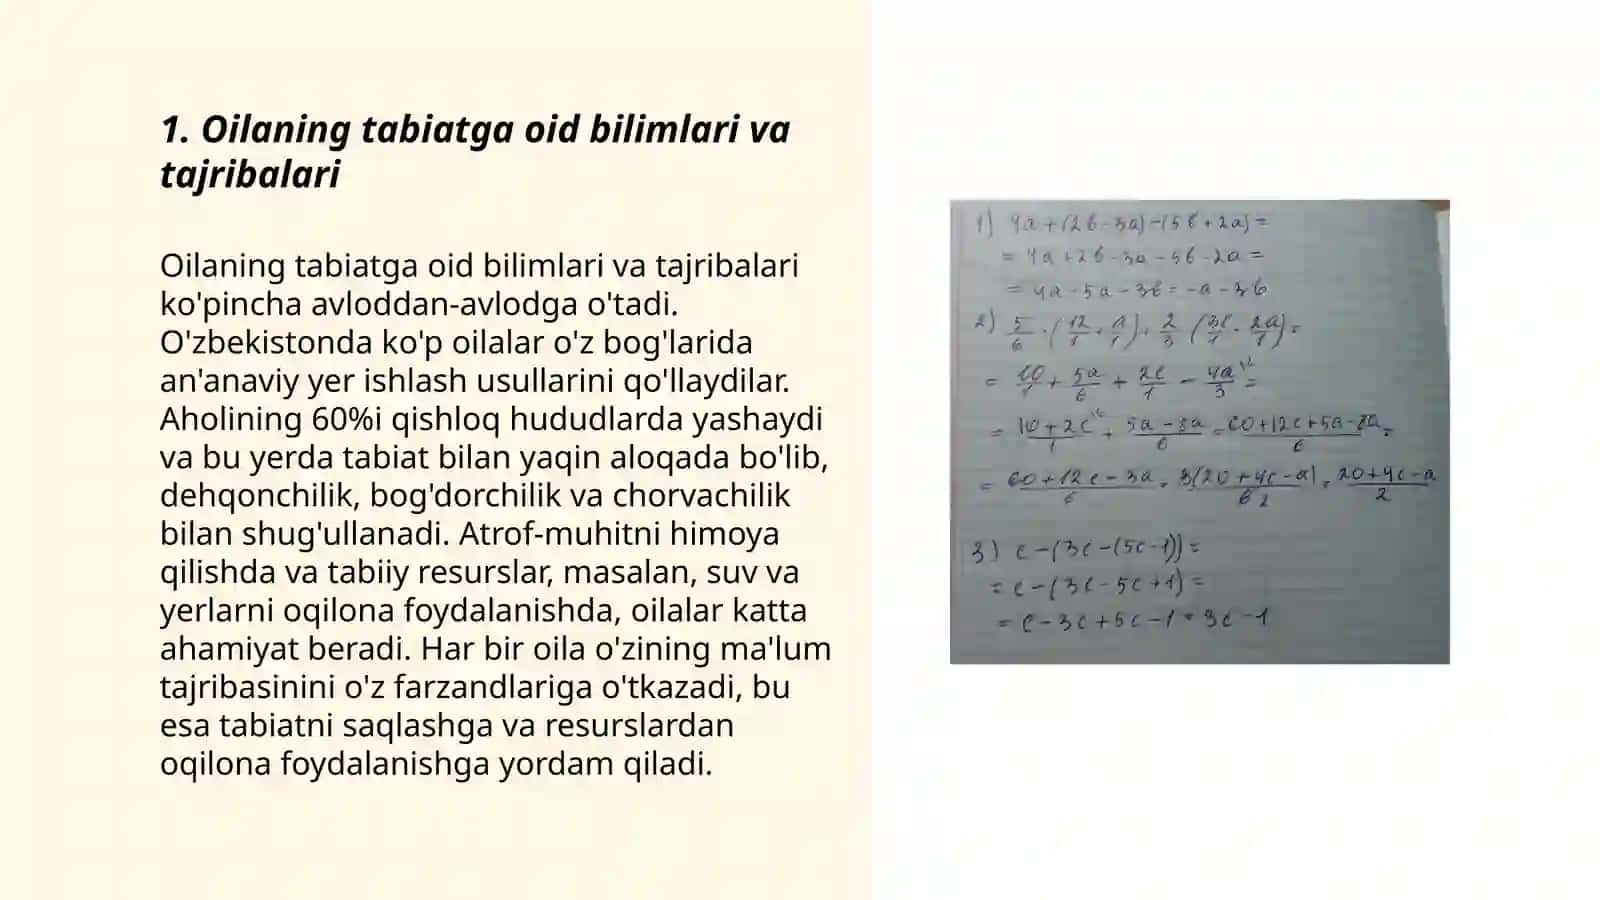 1. Oilaning tabiatga oid bilimlari va
tajribalari
Oilaning tabiatga oid bilimlari va tajribalari
ko'pincha avloddan-avlodga o'tadi.
O'zbekistonda ko'p oilalar o'z bog'larida
an'anaviy yer ishlash usullarini qo'llaydilar.
Aholining 60%i qishloq hududlarda yashaydi
va bu yerda tabiat bilan yaqin aloqada bo'lib,
dehqonchilik, bog'dorchilik va chorvachilik
bilan shug'ullanadi. Atrof-muhitni himoya
qilishda va tabiiy resurslar, masalan, suv va
yerlarni oqilona foydalanishda, oilalar katta
ahamiyat beradi. Har bir oila o'zining ma'lum
tajribasinini o'z farzandlariga o'tkazadi, bu
esa tabiatni saqlashga va resurslardan
oqilona foydalanishga yordam qiladi.
1) 4a+(2b-3a)-(5b+2a)=
=4a+2b-3a-5b-2a=
=4a-5a-3b=-a-3b
2) 5/6·(12/1+a/1)+2/3·(3c/1-2a/1)=
=10/1+5a/6+2c/1-4a/3=
=10+2c/1+5a-8a/6=60+12c+5a-8a/6=
=60+12c-3a/6=3(20+4c-a)/6 2=20+4c-a/2
3) c-(3c-(5c-1))=
=c-(3c-5c+1)=
=c-3c+5c-1=3c-1